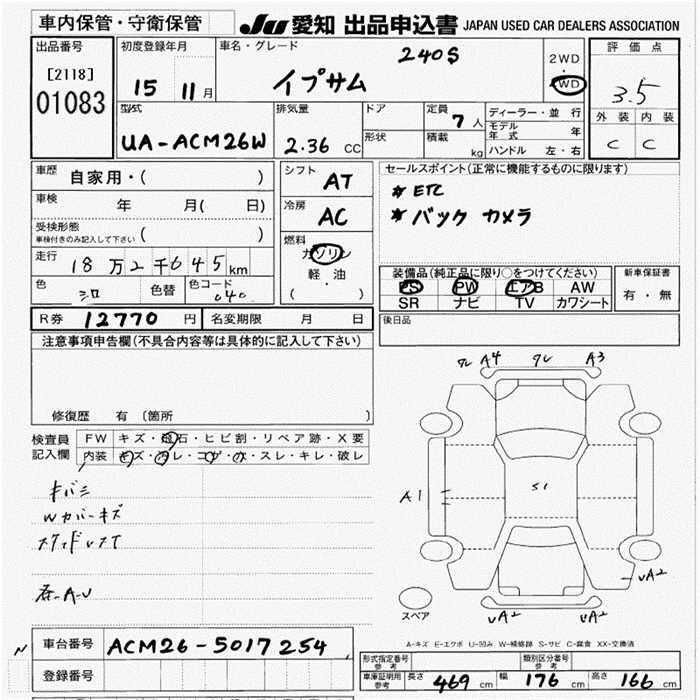 車内保管・守衛保管
JU 愛知 出品申込書 JAPAN USED CAR DEALERS ASSOCIATION
出品番号
[2118]
01083
初度登録年月
15 11月
車名・グレード
240S
イプサム
2WD
・
4WD
評価点
3.5
外装 内装
C C
型式
UA-ACM26W
排気量
2.36 CC
ドア
形状
定員
7人
積載
kg
ディーラー・並 行
モデル年式 年
ハンドル 左・右
車歴
自家用・( )
車検
年 月( 日)
受検形態
車検付きのみ記入して下さい ( )
走行
18万2千645km
色
シロ
色替
色コード
040
シフト
AT
冷房
AC
燃料
ガソリン
軽・油
( )
セールスポイント(正常に機能するものに限ります)
* ETC
* バック カメラ
装備品(純正品に限り○をつけてください)
PS PW エアB AW
SR ナビ TV カワシート
新車保証書
有・無
R券 12770 円
名変期限 月 日
後日品
注意事項申告欄(不具合内容等は具体的に記入して下さい)
修復歴 有 (箇所 )
検査員
記入欄
FW キズ・飛石・ヒビ割・リペア跡・X要
内装 キズ・汚レ・コゲ・穴・スレ・キレ・破レ
キバミ
Wカバーキズ
A4
A3
A1
S1
UA2
UA2
UA2
スペア
A-キズ E-エクボ U-凹み W-補修跡 S-サビ C-腐食 XX-交換済
N
車台番号 ACM26-5017254
登録番号
形式指定番号
参考
類別区分番号
参考
車庫証明用
参考
長さ 469 cm 幅 176 cm 高さ 166 cm